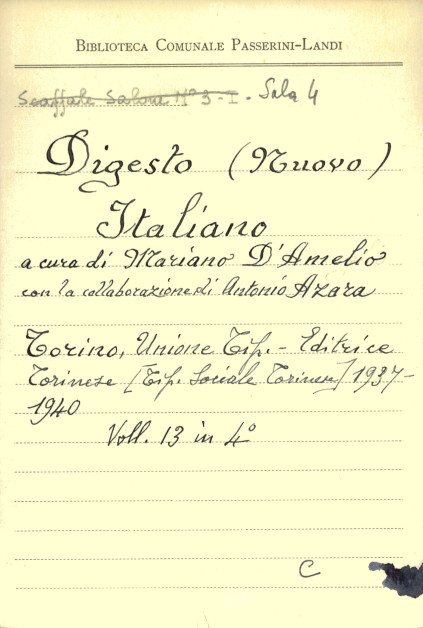 BIBLIOTECA COMUNALE PASSERINI-LANDI
Scaffale Salone N° 3 - I - Sala 4
Digesto (Nuovo)
Italiano
a cura di Mariano D'Amelio
con la collaborazione di Antonio Azara
Torino, Unione Tip. - Editrice
Torinese [Tip. Sociale Torinese] 1937-
1940
Voll. 13 in 4°
C